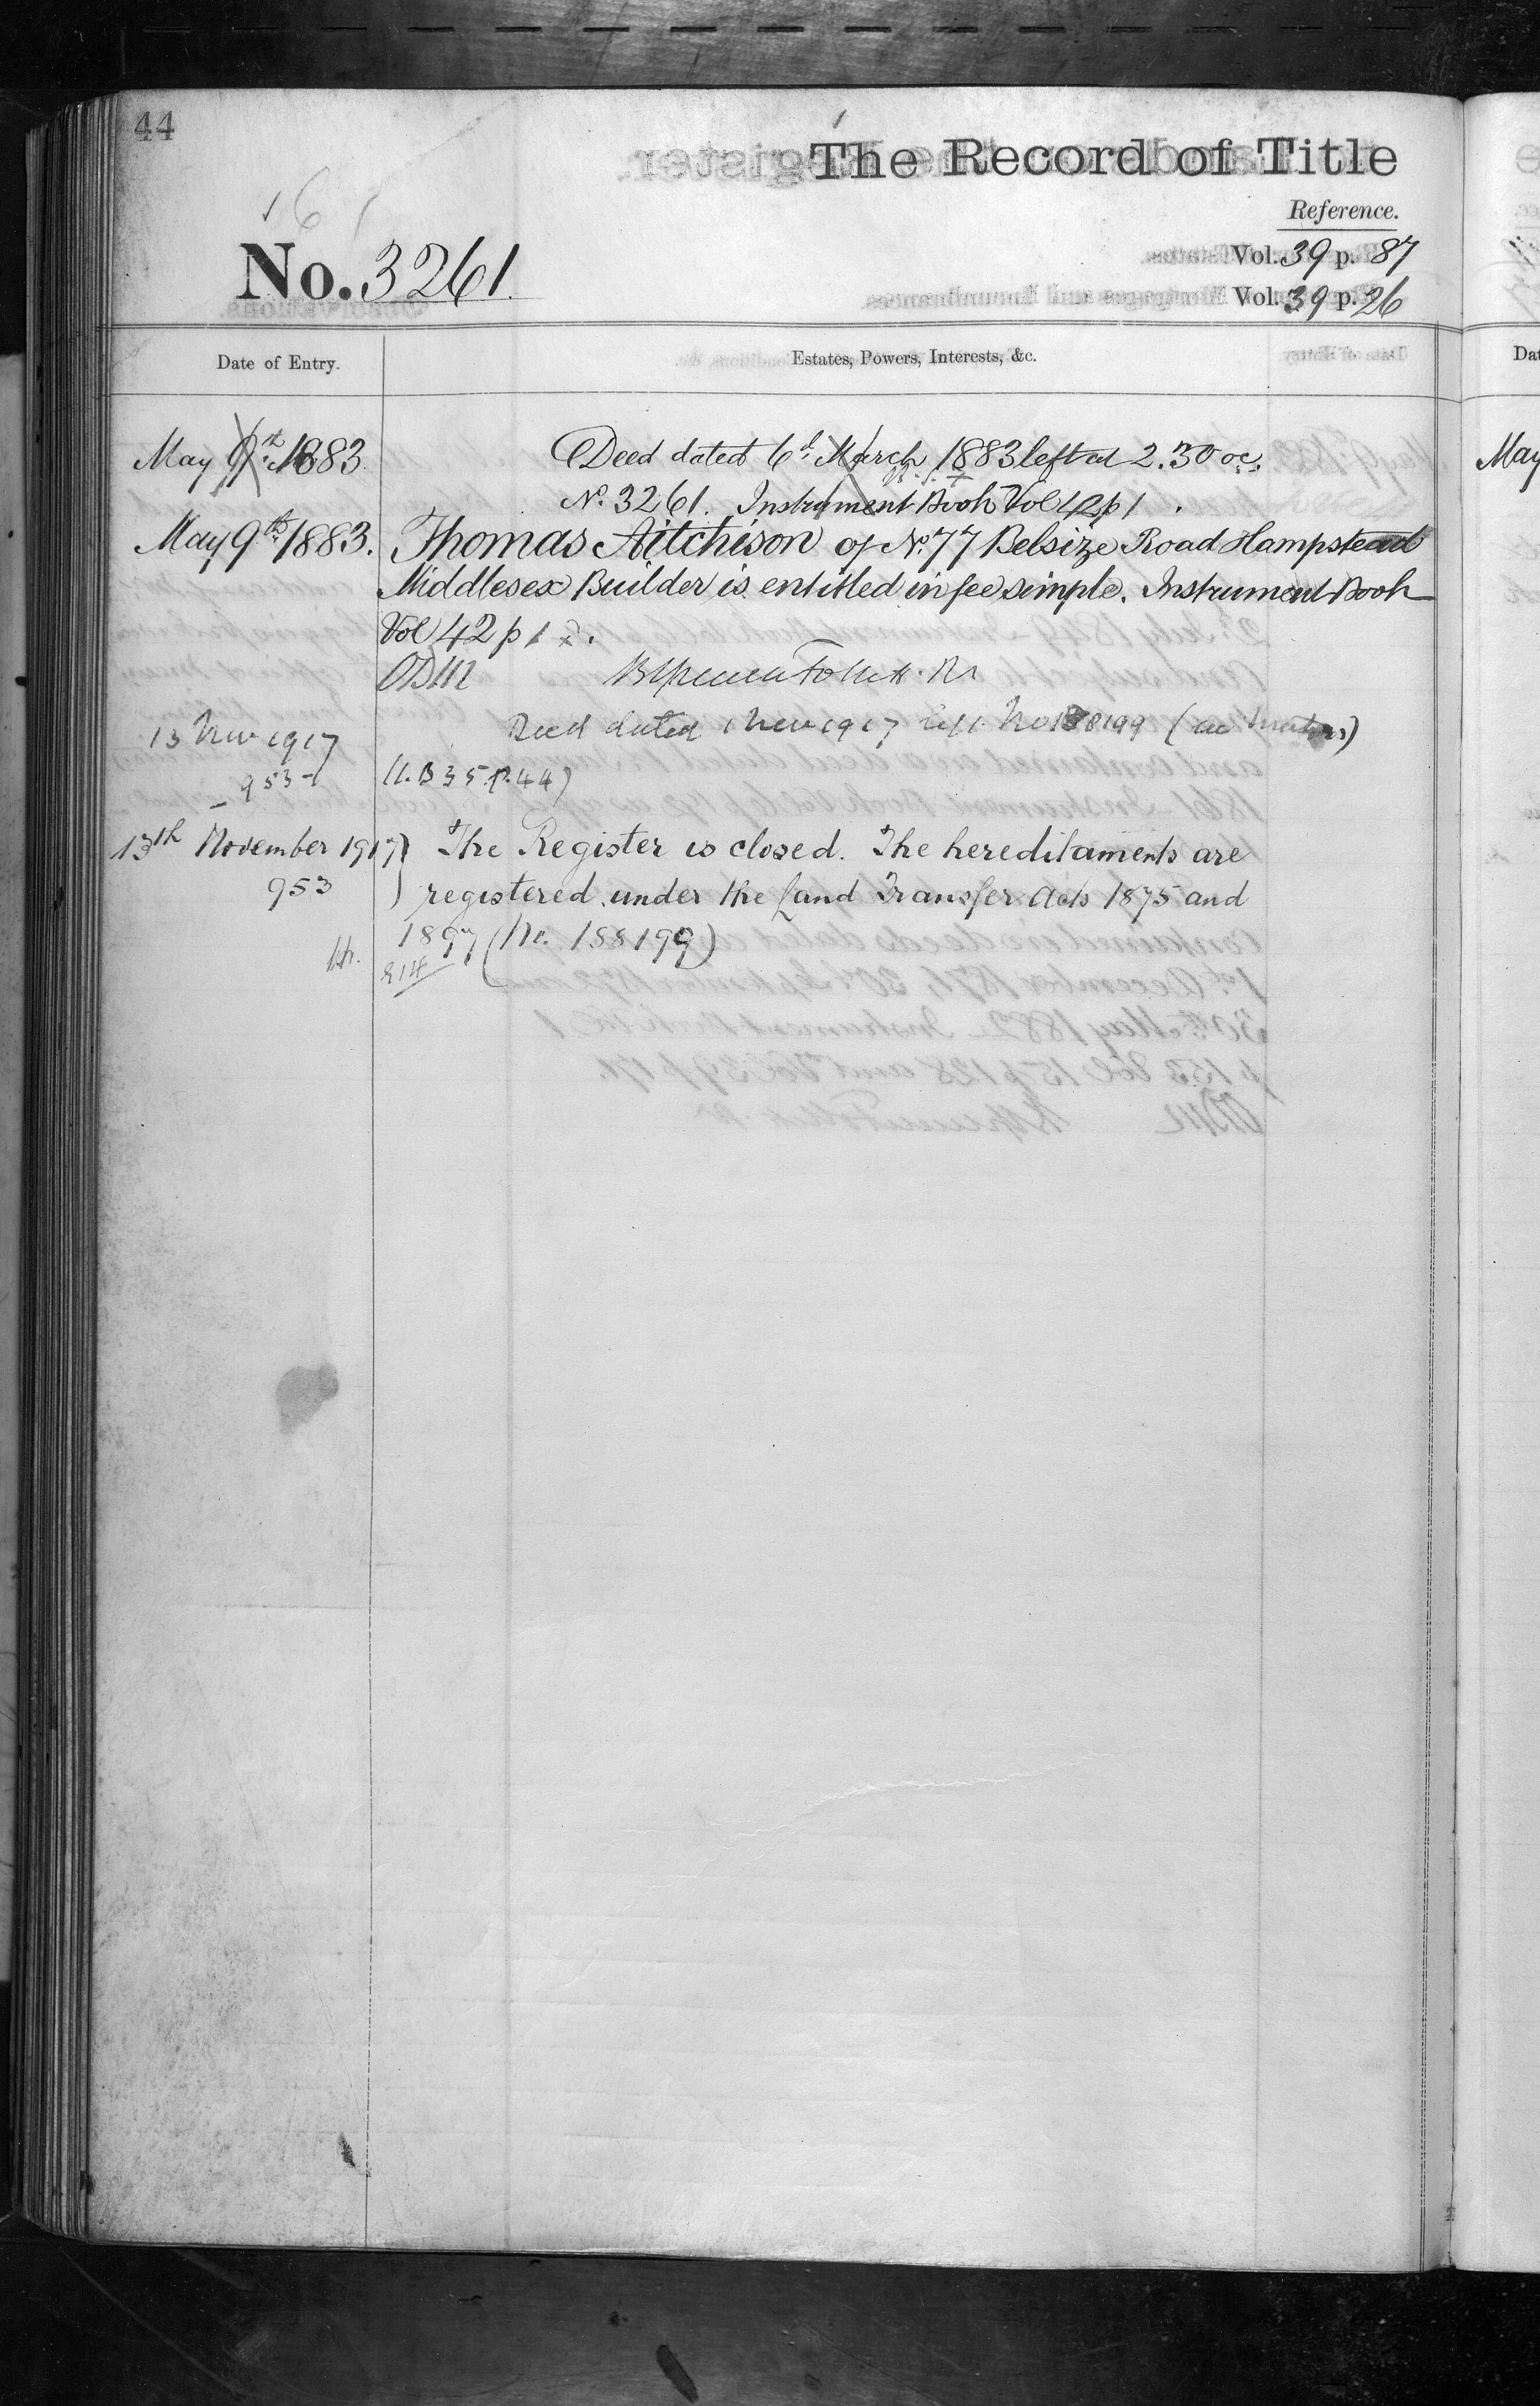 44
The Record of Title
Reference.
No. 3261.
Vol. 39 p. 87
Vol. 39 p. 26
Date of Entry.
Estates, Powers, Interests, &c.
May 9th 1883.
Deed dated 6th March 1883 left at 2.30 oc.
No. 3261. Instrument Book Vol 42 p 1
May 9th 1883.
Thomas Aitchison of No. 77 Belsize Road Hampstead
Middlesex Builder is entitled in fee simple. Instrument Book
Vol 42 p 1
13 Nov 1917
Deed dated 1 Nov 1917 left No 188199
953
B 35 p. 44)
13th November 1917)
The Register is closed. The hereditaments are
953
) registered under the Land Transfer Acts 1875 and
1897 (No. 188199)
May